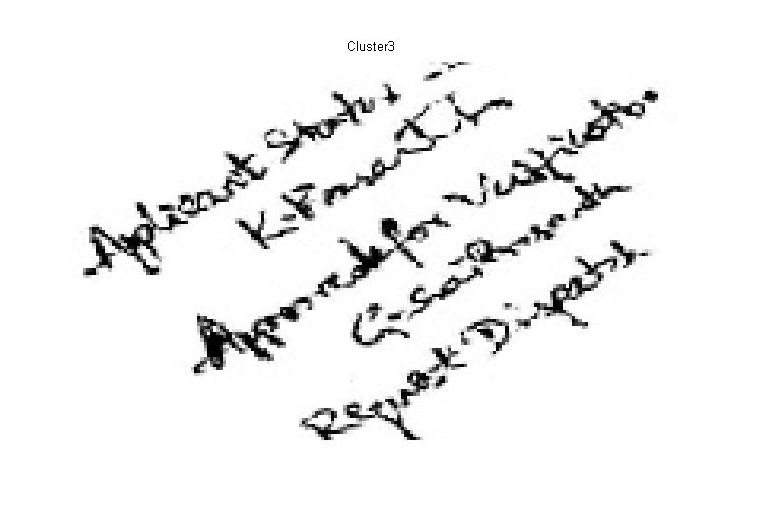 Cluster3
Applicant Status
K-Prasanth
Approved for Verification
G-Sai Prasanth
Request Dispatch